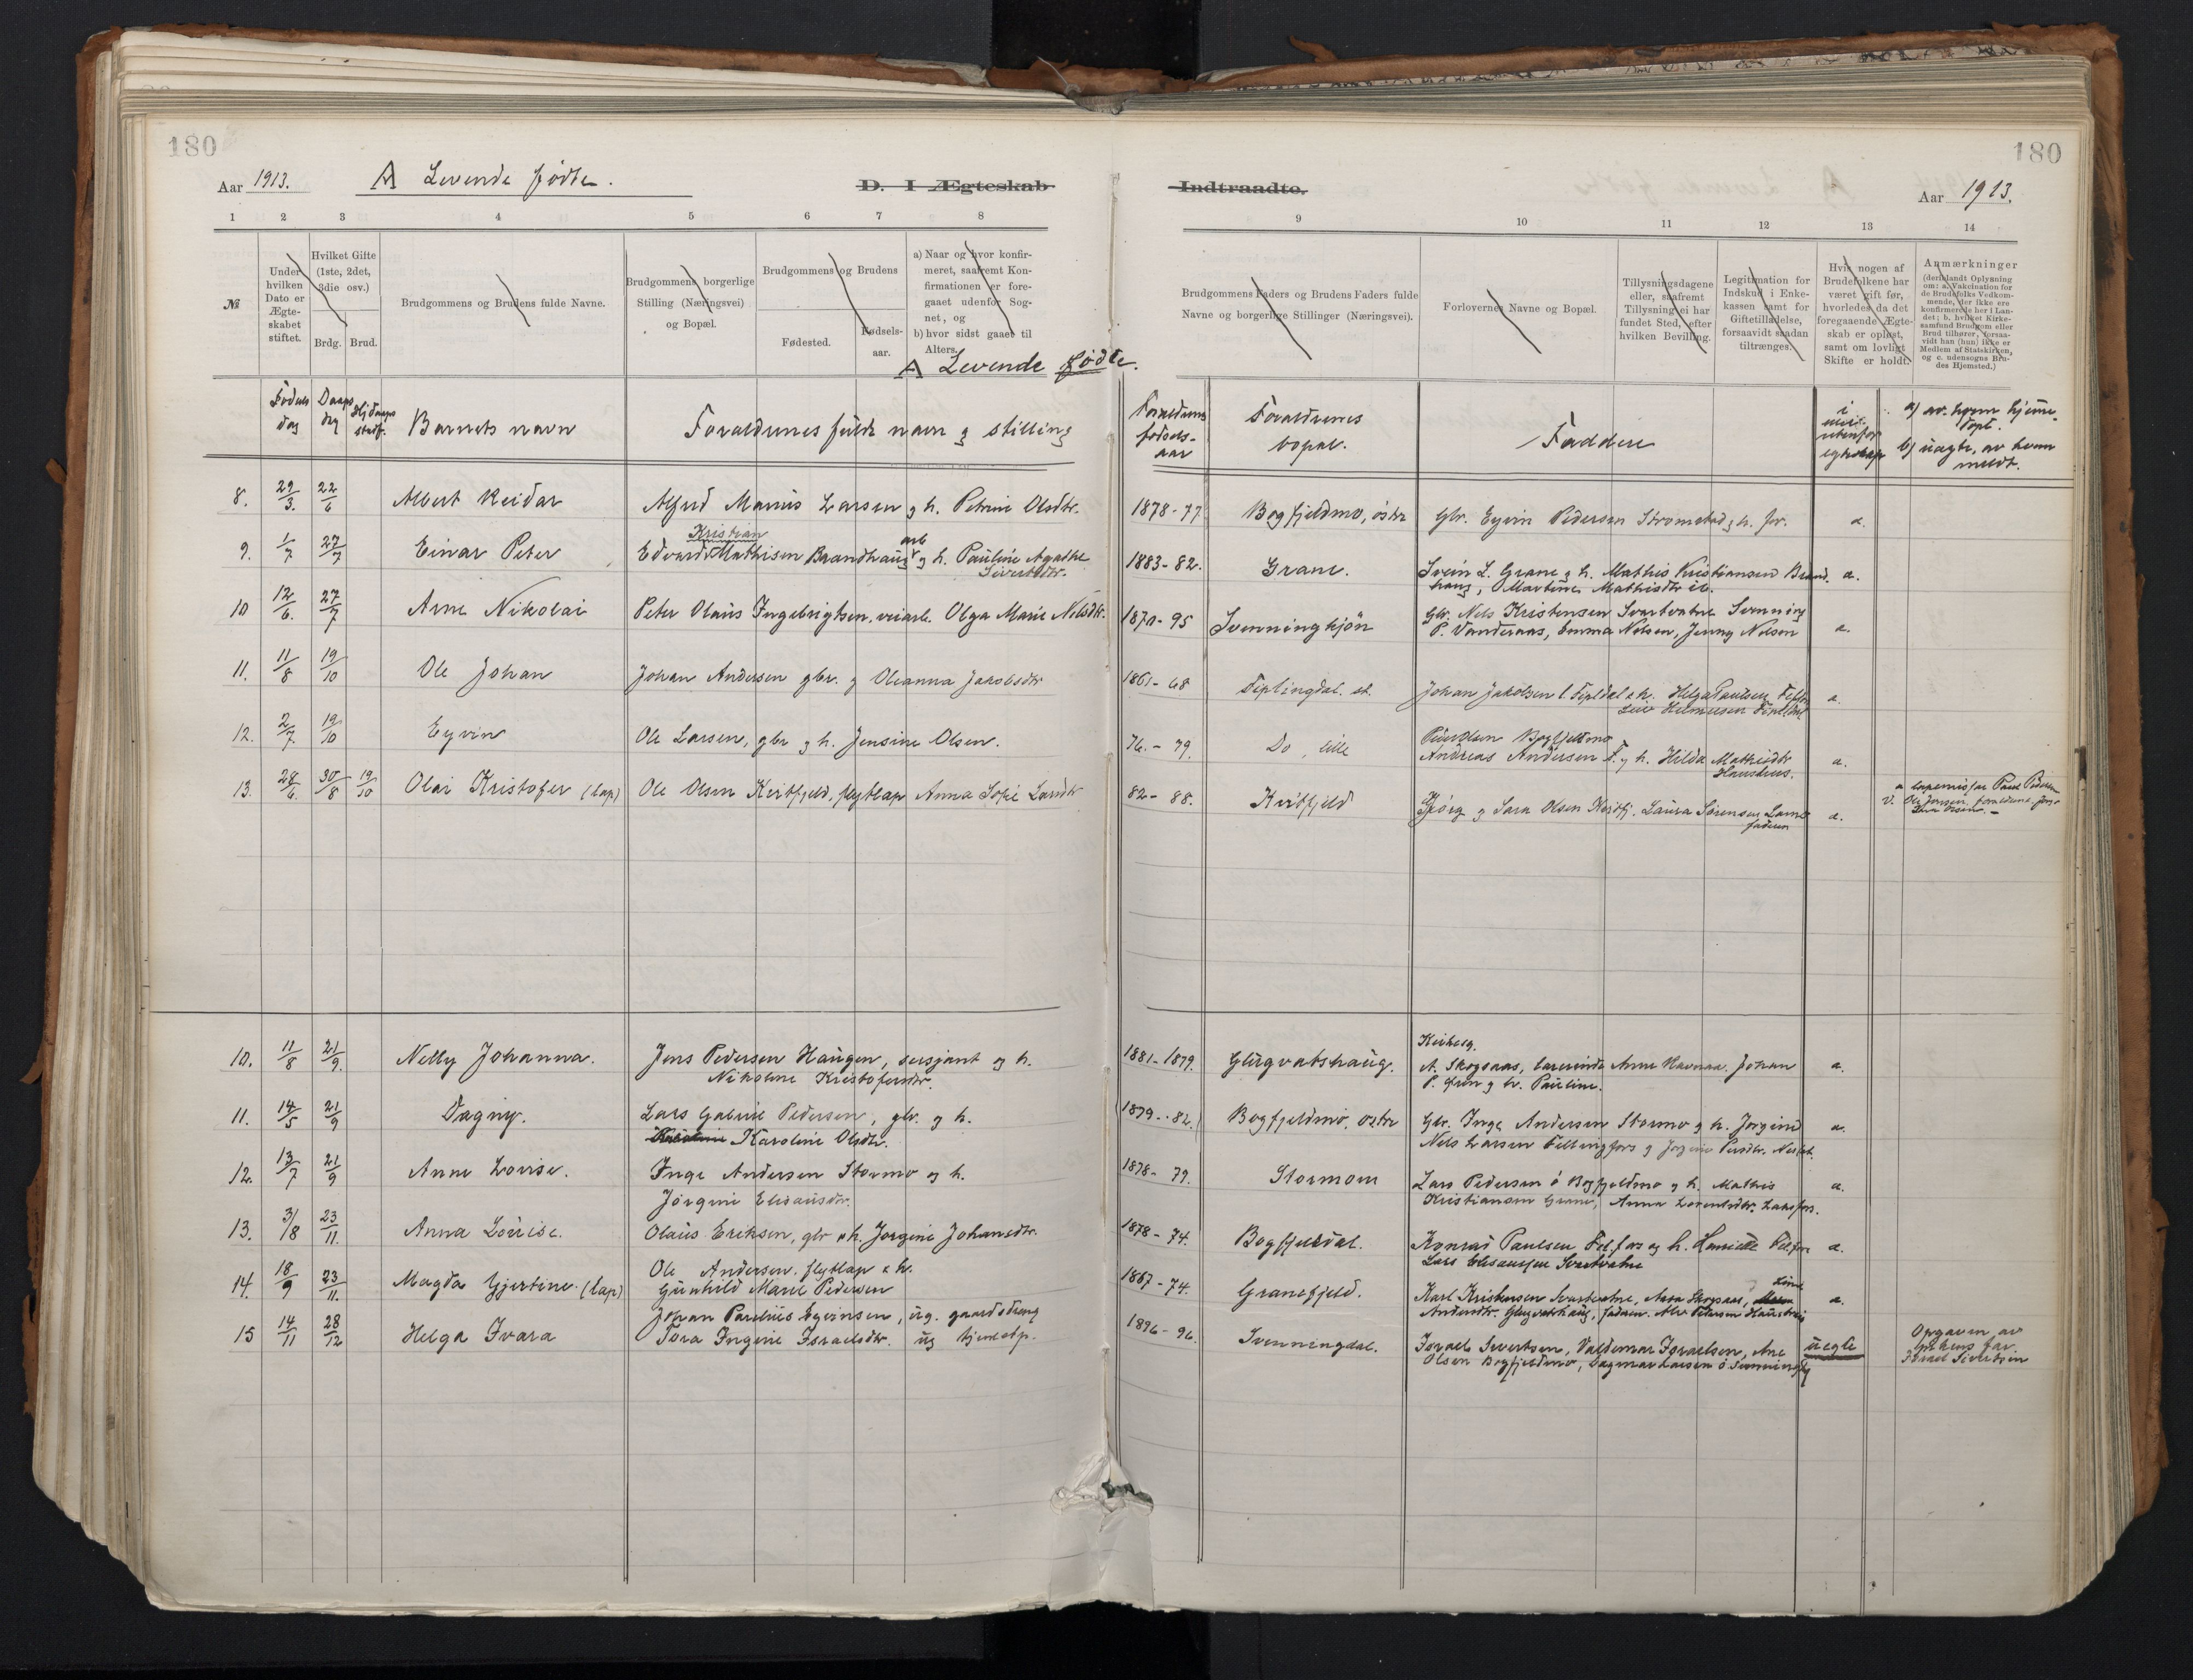 180
180
Aar 1913.
A Levende fødte.
D. I Ægteskab
Indtraadte.
Aar 1913.
1 2 3 4 5 6 7 8
9 10 11 12 13 14
№
Under hvilken Dato er Ægte-skabet stiftet.
Hvilket Gifte (1ste, 2det, 3die osv.)
Brdg. Brud.
Brudgommens og Brudens fulde Navne.
Brudgommens borgerlige Stilling (Næringsvei) og Bopæl.
Brudgommens og Brudens
Fødested.
Fødsels-aar.
a) Naar og hvor konfir-
meret, saafremt Kon-
firmationen er fore-
gaaet udenfor Sog-
net, og
b) hvor sidst gaaet til
Alters.
A Levende fødte.
Brudgommens Faders og Brudens Faders fulde
Navne og borgerlige Stillinger (Næringsvei).
Forlovernes Navne og Bopæl.
Tillysningsdagene
eller, saafremt
Tillysning ei har
fundet Sted, efter
hvilken Bevilling.
Legitimation for
Indskud i Enke-
kassen samt for
Giftetilladelse,
forsaavidt saadan
tiltrænges.
Hvis nogen af
Brudefolkene har
været gift før,
hvorledes da det
foregaaende Ægte-
skab er opløst,
samt om lovligt
Skifte er holdt.
Anmærkninger
(deriblandt Oplysning
om: a. Vakcination for
de Brudefolks Vedkom-
mende, der ikke ere
konfirmerede her i Lan-
det; b. hvilket Kirke-
samfund Brudgom eller
Brud tilhører, forsaa-
vidt han (hun) ikke er
Medlem af Statskirken,
og c. udensogns Bru-
des Hjemsted.)
Fødsels dag
Daaps dag
Hj daaps stadf.
Barnets navn
Forældrenes fulde navn og stilling
Forældrenes fødsels-aar
Forældrenes bopæl.
Faddere
i eller utenfor egteskap
a) av hvem hjemme-døpt.
b) uægte, av hvem meldt.
8. 29/3. 22/6 Albert Reidar Alfred Marius Larsen og h. Petrine Olsdtr. 1878-77 Bogfjeldmo, østre Gbr. Eyvin Pedersen Strømstad og h. for. a.
Kristian arb
9. 1/7 27/7 Einar Peter Edvard Mathisen Brandhaug og h. Pauline Agathe 1883-82. Grane. Svein L. Grane og h. Mathis Kristiansen Brand- a.
Sivertsdtr. haug, Martine Mathisdtr ib.
10 12/6. 27/7 Arne Nikolai Peter Olaus Ingebrigtsen, veiarb. Olga Marie Nilsdtr. 1870-95 Svenninghjøn Gbr. Nils Kristensen Svartvatne Svenning
P. Vanderaas, Emma Nilsen, Jenny Nilsen a.
11. 11/8 19/10 Ole Johan Johan Andersen gbr. og Oleanna Jakobsdtr 1861-68 Fiplingdal. st. Johan Jakobsen l. Fipldal & h. Helga Paulsen a.
12. 2/7. 19/10 Eyvin Ole Larsen, gbr og h. Jensine Olsen. 76.-79. Do, lille Peder Olsen Bogfjeldmo
Andreas Andersen F. og h. Hilda Mathisdtr a.
13. 28/6. 30/8 19/10 Olai Kristofer (lap) Ole Olsen Kvitfjeld, flytlap Anna Sofie Larsdtr 82-88. Kvitfjeld Georg og Sara Olsen Kvitfj. Laura Sørensen a.
faderen
a lapemisjær Paul Pedersen
10. 11/8 21/9. Nelly Johanna. Jens Pedersen Haugen, sersjant og h. 1881-1879. Glugvatshaug. Kirkesg.
Nikoline Kristofersdtr. A. Skogsaas, lærerinde Anne Havnaa. Johan a.
P. Øren og h. Pauline.
11. 14/5 21/9 Dagny. Lars Gabriel Pedersen, gbr. og h. 1879-82. Bogfjeldmo, østre Gbr. Inge Andersen Stormo og h. Jørgine a.
Karoline Olsdtr. Nils Larsen Fellingfors og Jørgine
12. 13/7 21/9 Anne Lovise. Inge Andersen Stormo og h. 1878-79. Stormoen Lars Pedersen ø Bogfjeldmo og h. Mathis a.
Jørgine Elisæusdtr. Kristiansen Grane, Anna Lorentsdtr. Laksfors.
13. 31/8 23/11. Anna Lovise. Olaus Eriksen, gbr & h. Jørgine Johansdtr. 1878-74. Bogfjeldal. Konrad Paulsen Fel.fors og h. Hanna Fel.fors a.
Lars Elisæussen Svartvatne
14. 18/9 23/11. Magda Gjertine (lap) Ole Andersen. flytlap & h. 1867-74. Granefjeld. Karl Kristensen Svartvatne, Asta Skogsaas, a.
Gunhild Marie Pedersen Andersdtr. Glugvatshaug, faderen.
15 14/11 28/12 Helga Ivara Johan Parelius Eyvinsen, ug. gaardsdreng 1896-96. Svenningdal. Israel Sivertsen, Valdemar Israelsen, Ane uegte
Tora Ingine Israelsdtr. ug tjenestp. Olsen Bogfjeldmo, Dagmar Larsen ø Svenningdal
Opgaven av
pikens far
Israel Sivertsen